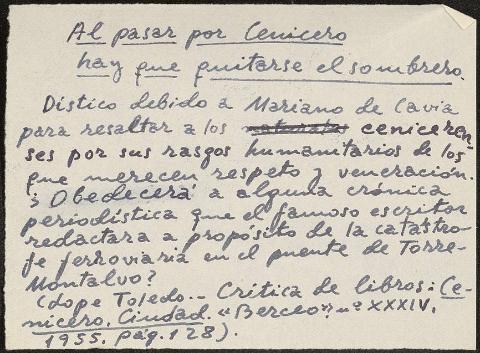 Al pasar por Cenicero
hay que quitarse el sombrero.
Dístico debido a Mariano de Cavia
para resaltar a los ceniceren-
ses por sus rasgos humanitarios de los
que merecen respeto y veneración.
¿Obedecerá a alguna crónica
periodística que el famoso escritor
redactara a propósito de la catástro-
fe ferroviaria en el puente de Torre-
Montalvo?
(Lope Toledo.- Crítica de libros: Ce-
nicero, Ciudad. «Berceo» nº XXXIV,
1955, pág. 128).